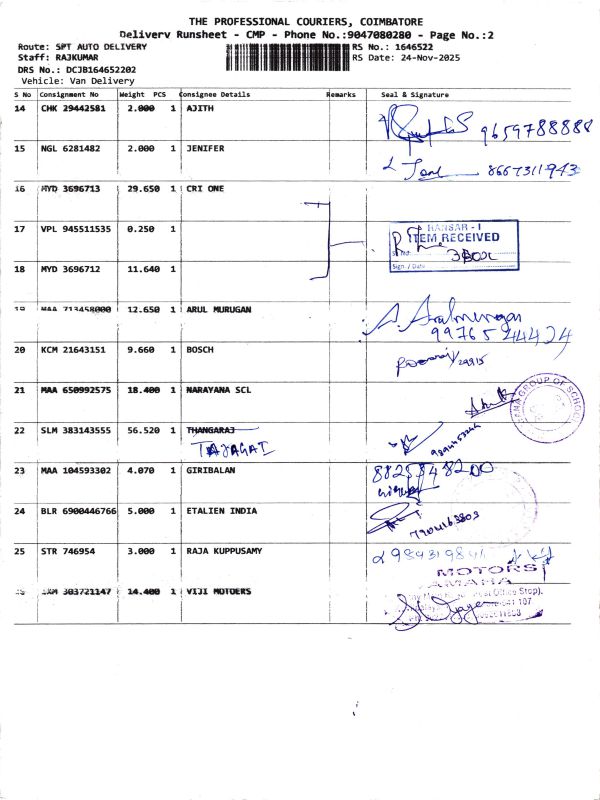 THE PROFESSIONAL COURIERS, COIMBATORE
Delivery Runsheet - CMP - Phone No.:9047080280 - Page No.:2
Route: SPT AUTO DELIVERY RS No.: 1646522
Staff: RAJKUMAR RS Date: 24-Nov-2025
DRS No.: DCJB164652202
Vehicle: Van Delivery
S No Consignment No Weight PCS Consignee Details Remarks Seal & Signature
14 CHK 29442581 2.000 1 AJITH
9659788888
15 NGL 6281482 2.000 1 JENIFER
8667311943
16 MYD 3696713 29.650 1 CRI ONE
17 VPL 945511535 0.250 1
RANSAR - I
ITEM RECEIVED
Sign / Date
18 MYD 3696712 11.640 1
19 MAA 713458000 12.650 1 ARUL MURUGAN
A. Arulmurugan
9976544424
20 KCM 21643151 9.660 1 BOSCH
21 MAA 650992575 18.400 1 NARAYANA SCL
GROUP OF SCHOOL
22 SLM 383143555 56.520 1 THANGARAJ
23 MAA 104593302 4.070 1 GIRIBALAN
24 BLR 6900446766 5.000 1 ETALIEN INDIA
7904163803
25 STR 746954 3.000 1 RAJA KUPPUSAMY
MOTORS
303721147 14.400 1 VIJI MOTOERS
Office Stop).
641 107